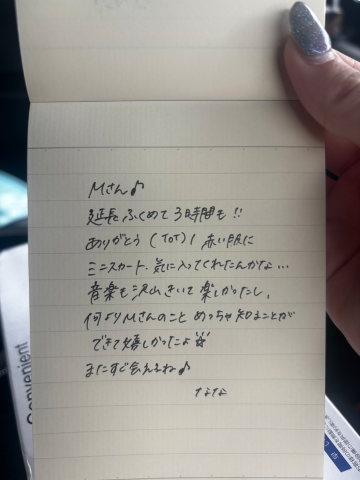 Mさん♪
延長ふくめて3時間も!!
ありがとう(ToT)/ 赤い服に
ミニスカート、気に入ってくれたんかな...
音楽も沢山きいて楽しかったし、
何よりMさんのこと めっちゃ知ることが
できて嬉しかったよ
またすぐ会えるね♪
なな
Convenient